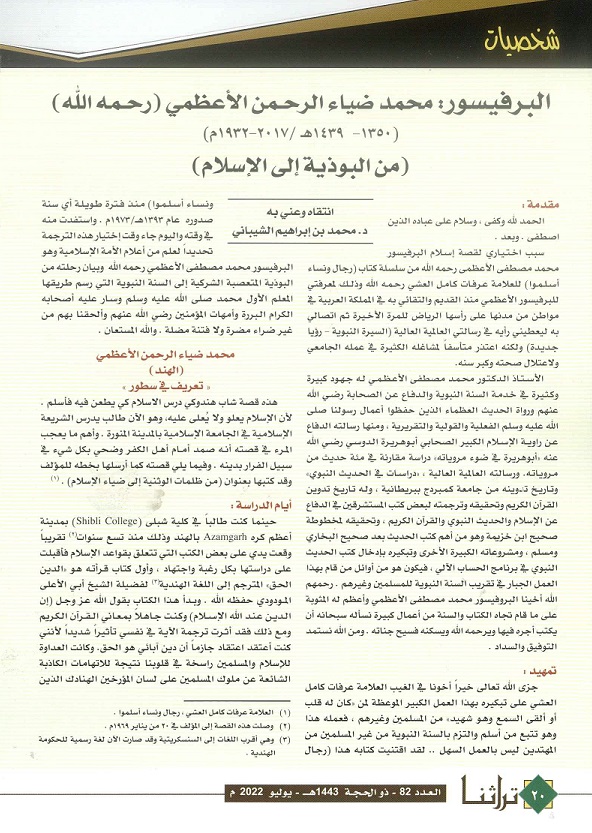 شخصيات
البرفيسور: محمد ضياء الرحمن الأعظمي (رحمه الله)
(١٣٥٠- ١٤٣٩هـ /٢٠١٧-١٩٣٢م)
(من البوذية إلى الإسلام)
انتقاه وعني به
د. محمد بن إبراهيم الشيباني
مقدمة :
الحمد لله وكفى ، وسلام على عباده الذين
اصطفى . وبعد .
سبب اختياري لقصة إسلام البرفيسور
محمد مصطفى الأعظمي رحمه الله من سلسلة كتاب (رجال ونساء
أسلموا) للعلامة عرفات كامل العشي رحمه الله وذلك لمعرفتي
للبرفيسور الأعظمي منذ القديم والتقائي به في المملكة العربية في
مواطن من مدنها على رأسها الرياض للمرة الأخيرة ثم اتصالي
به ليعطيني رأيه في رسالتي العالمية العالية (السيرة النبوية – رؤيا
جديدة) ولكنه اعتذر متأسفاً لمشاغله الكثيرة في عمله الجامعي
ولاعتلال صحته وكبر سنه.
الأستاذ الدكتور محمد مصطفى الأعظمي له جهود كبيرة
وكثيرة في خدمة السنة النبوية والدفاع عن الصحابة رضي الله
عنهم ورواة الحديث العظماء الذين حفظوا أعمال رسولنا صلى
الله عليه وسلم الفعلية والقولية والتقريرية ، ومنها رسالته الدفاع
عن راوية الإسلام الكبير الصحابي أبوهريرة الدوسي رضي الله
عنه ،«أبوهريرة في ضوء مروياته» دراسة مقارنة في مئة حديث من
مروياته. ورسالته العالمية العالية ، «دراسات في الحديث النبوي»
وتاريخ تدوينه من جامعة كمبردج ببريطانية ، وله تاريخ تدوين
القرآن الكريم وتحقيقه وترجمته لبعض كتب المستشرقين في الدفاع
عن الإسلام والحديث النبوي والقرآن الكريم . وتحقيقه لمخطوطة
صحيح ابن خزيمة وهو من أهم كتب الحديث بعد صحيح البخاري
ومسلم ، ومشروعاته الكبيرة الأخرى وتبكيره بإدخال كتب الحديث
النبوي في برنامج الحاسب الآلي ، فيكون هو من أوائل من قام بهذا
العمل الجبار في تقريب السنة النبوية للمسلمين وغيرهم . رحمهم
الله أخينا البروفيسور محمد مصطفى الأعظمي وأعظم له المثوبة
على ما قام تجاه الكتاب والسنة من أعمال كبيرة نسأله سبحانه أن
يكتب أجره فيها ويرحمه الله ويسكنه فسيح جناته . ومن الله نستمد
التوفيق والسداد .
تمهيد :
جزى الله تعالى خيراً أخونا في الغيب العلامة عرفات كامل
العشي على تبكيره بهذا العمل الكبير الموعظة لمن «كان له قلب
أو ألقى السمع وهو شهيد» من المسلمين وغيرهم ، فعمله هذا
وهو تتبع من أسلم والتزم بالسنة النبوية من غير المسلمين من
المهتدين ليس بالعمل السهل .. لقد اقتنيت كتابه هذا (رجال
ونساء أسلموا) منذ فترة طويلة أي سنة
صدوره عام ١٣٩٣هـ/١٩٧٣م . واستفدت منه
في وقته واليوم جاء وقت إختيار هذه الترجمة
تحديداً لعلم من أعلام الأمة الإسلامية وهو
البرفيسور محمد مصطفى الأعظمي رحمه الله وبيان رحلته من
البوذية المتعصبة الشركية إلى السنة النبوية التي رسم طريقها
المعلم الأول محمد صلى الله عليه وسلم وسار عليه أصحابه
الكرام البررة وأمهات المؤمنين رضي الله عنهم وألحقنا بهم من
غير ضراء مضرة ولا فتنة مضلة . والله المستعان .
محمد ضياء الرحمن الأعظمي
(الهند)
« تعريف في سطور »
هذه قصة شاب هندوكي درس الاسلام كي يطعن فيه فأسلم .
لأن الإسلام يعلو ولا يُعلى عليه، وهو الآن طالب يدرس الشريعة
الإسلامية في الجامعة الاسلامية بالمدينة المنورة . وأهم ما يعجب
المرء في قصته أنه صمد أمام أهل الكفر وضحي بكل شيء في
سبيل الفرار بدينه . وفيما يلي قصته كما أرسلها بخطه للمؤلف
وقد كتبها بعنوان (من ظلمات الوثنية إلى ضياء الإسلام) . (١)
أيام الدراسة :
حينما كنت طالباً في كلية شبلى (Shibli College) بمدينة
أعظم كره Azamgarh بالهند وذلك منذ تسع سنوات(٢) تقريباً
وقعت يدي على بعض الكتب التي تتعلق بقواعد الإسلام فأقبلت
على دراستها بكل رغبة واجتهاد ، وأول كتاب قرأته هو «الدين
الحق» المترجم إلى اللغة الهندية(٣) لفضيلة الشيخ أبي الأعلى
المودودي حفظه الله . وبدأ هذا الكتاب بقول الله عز وجل (إن
الدين عند الله الإسلام) وكنت جاهلاً بمعاني القرآن الكريم
ومع ذلك فقد أثرت ترجمة الآية في نفسي تأثيراً شديداً لأنني
كنت أعتقد اعتقاد جازماً أن دين آبائي هو الحق. وكانت العداوة
للإسلام والمسلمين راسخة في قلوبنا نتيجة للاتهامات الكاذبة
الشائعة عن ملوك المسلمين على لسان المؤرخين الهنادك الذين
(١) العلامة عرفات كامل العشي ، رجال ونساء أسلموا .
(٢) وصلت هذه القصة إلى المؤلف في ٢٠ من يناير ١٩٦٩م .
(٣) وهي أقرب اللغات إلى السنسكريتية وقد صارت الآن لغة رسمية للحكومة
الهندية .
٢٠ تراثنا العدد 82 - ذو الحجة 1443هـ - يوليو 2022 م